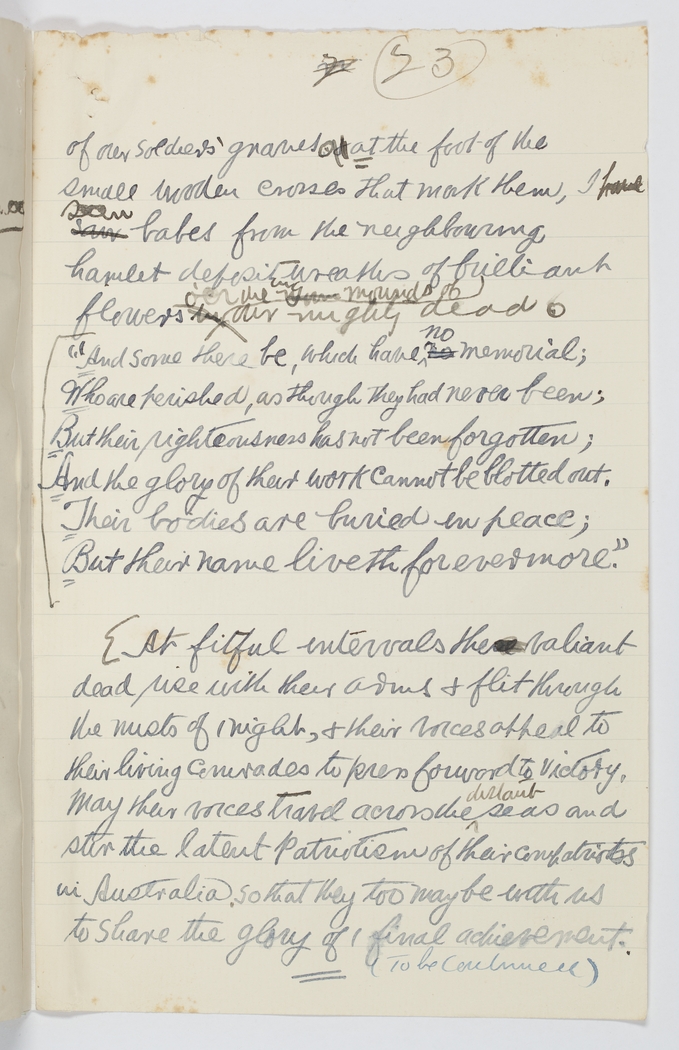 23
of our soldiers' graves at the foot of the
small wooden crosses that mark them, I have
seen
saw babes from the neighbouring
hamlet deposit wreaths of brilliant
o'er the mounds of
flowers our mighty dead.
no
"And some there be, which have memorial;
Who are perished, as though they had never been;
But their righteousness has not been forgotten;
And the glory of their work cannot be blotted out.
Their bodies are buried in peace;
But their name liveth for evermore."
At fitful intervals these valiant
dead rise with their arms & flit through
the mists of night, & their voices appeal to
their living comrades to press forward to Victory.
distant
May their voices travel across the seas and
stir the latent Patriotism of their compatriots
in Australia so that they too may be with us
to share the glory of final achievement.
(To be Continued)